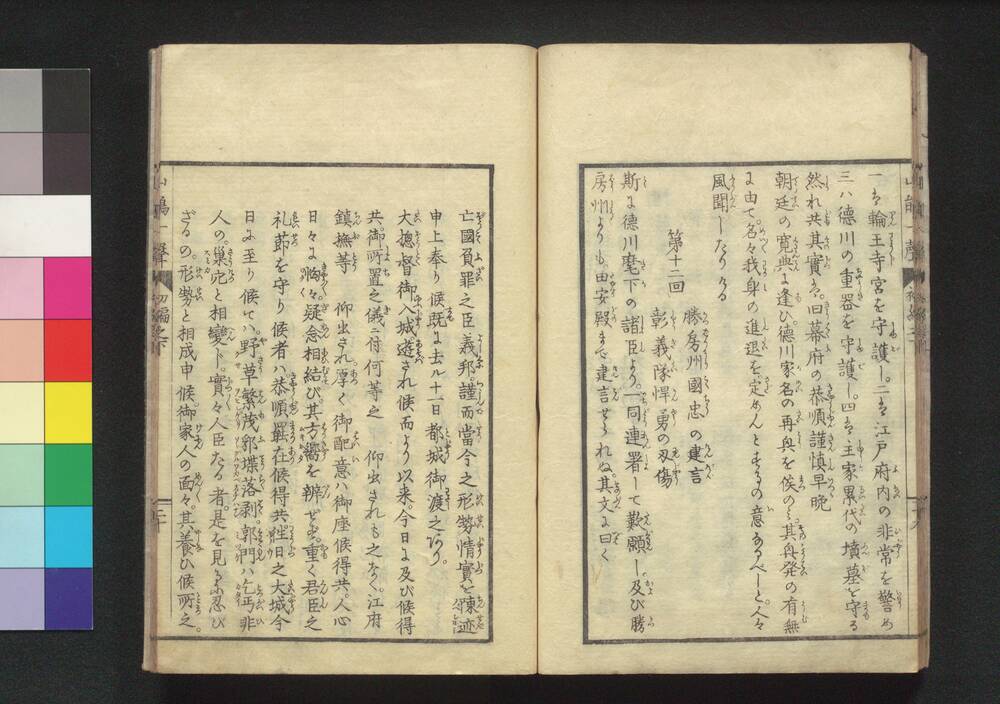 一ハ輪王寺宮を守護し。二ハ江戸府内の非常を警め
三ハ徳川の重器を守護し。四ハ主家累代の墳墓を守る
然れ共其實ハ。旧幕府の恭順謹慎早晩
朝廷の寛典に逢ひ。德川家名の再興を俟のミ。其興発の有無
に由て。名々我身の進退を定めんとするの意なるべしと人々
風聞したりける
第十二回
勝房州國忠の建言
彰義隊悍勇の刃傷
斯に德川麾下の諸臣より。一同連署して歎願し及び勝
房州よりも田安殿まで建言せられぬ其文に曰く
亡國負罪之臣義邦謹而當今之形勢情實を陳述
申上奉り候既に去ル十一日都城御渡之
大摠督御入城遊され候而より以来。今日に及び候得
共。御所置之儀ニ付何等之 仰出されも之なく。江府
鎮撫等 仰出され厚く御配意ハ御座候得共。人心
日々に洶々疑念相結び。其方嚮を辨ぜず。重く君臣之
礼節を守り候者ハ恭順罷在候得共。昔日之大城今
日に至り候てハ。野草繁茂郭堞落剥。郭門ハ乞丐非
人の。巣穴と相變じ。實々人臣たる者。是を見るに忍び
ざるの。形勢と相成申候。御家人の面々。其養ひ候所之。
山嘴一聲
初編下